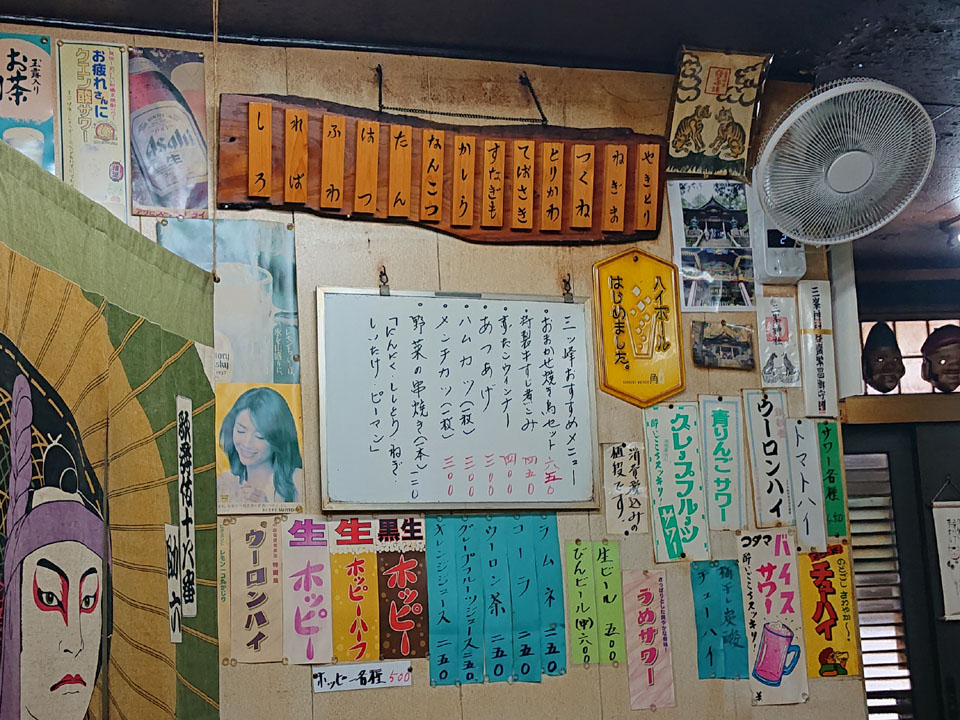 やきとり
ねぎま
つくね
とりかわ
てばさき
すなぎも
かしら
なんこつ
たん
はつ
ふわ
ればし
しろ
玉露入り
お茶
お疲れさんに
クエン酸サワー
Asahi
生
ハイボール
はじめました。
角
三ッ峰おすすめメニュー
・おまかせ焼き鳥セット 六五〇
・特製牛すじ煮こみ 四五〇
・すたみなウィンナー 四〇〇
・あつあげ 三〇〇
・ハムカツ(一枚) 三〇〇
・メンチカツ(一枚) 三〇〇
野菜の串焼き(一本)二一〇
「にんにく、ししとり、ねぎ、
しいたけ、ピーマン」
消費税込みの
値段です
歌舞伎十八番
助六
ウーロンハイ
生ホッピー
生ホッピーハーフ
黒生ホッピー
ホッピー各種 500
ラムネ 二五〇
コーラ 二五〇
ウーロン茶 二五〇
グレープフルーツジュース 二五〇
オレンジジュース 二五〇
生ビール 五〇〇
びんビール(中)六〇〇
うめサワー
グレープフルーツサワー
青りんごサワー
ウーロンハイ
トマトハイ
サワー各種 450
チューハイ
コダマ
バイスサワー
酔いごこちスッキリ!